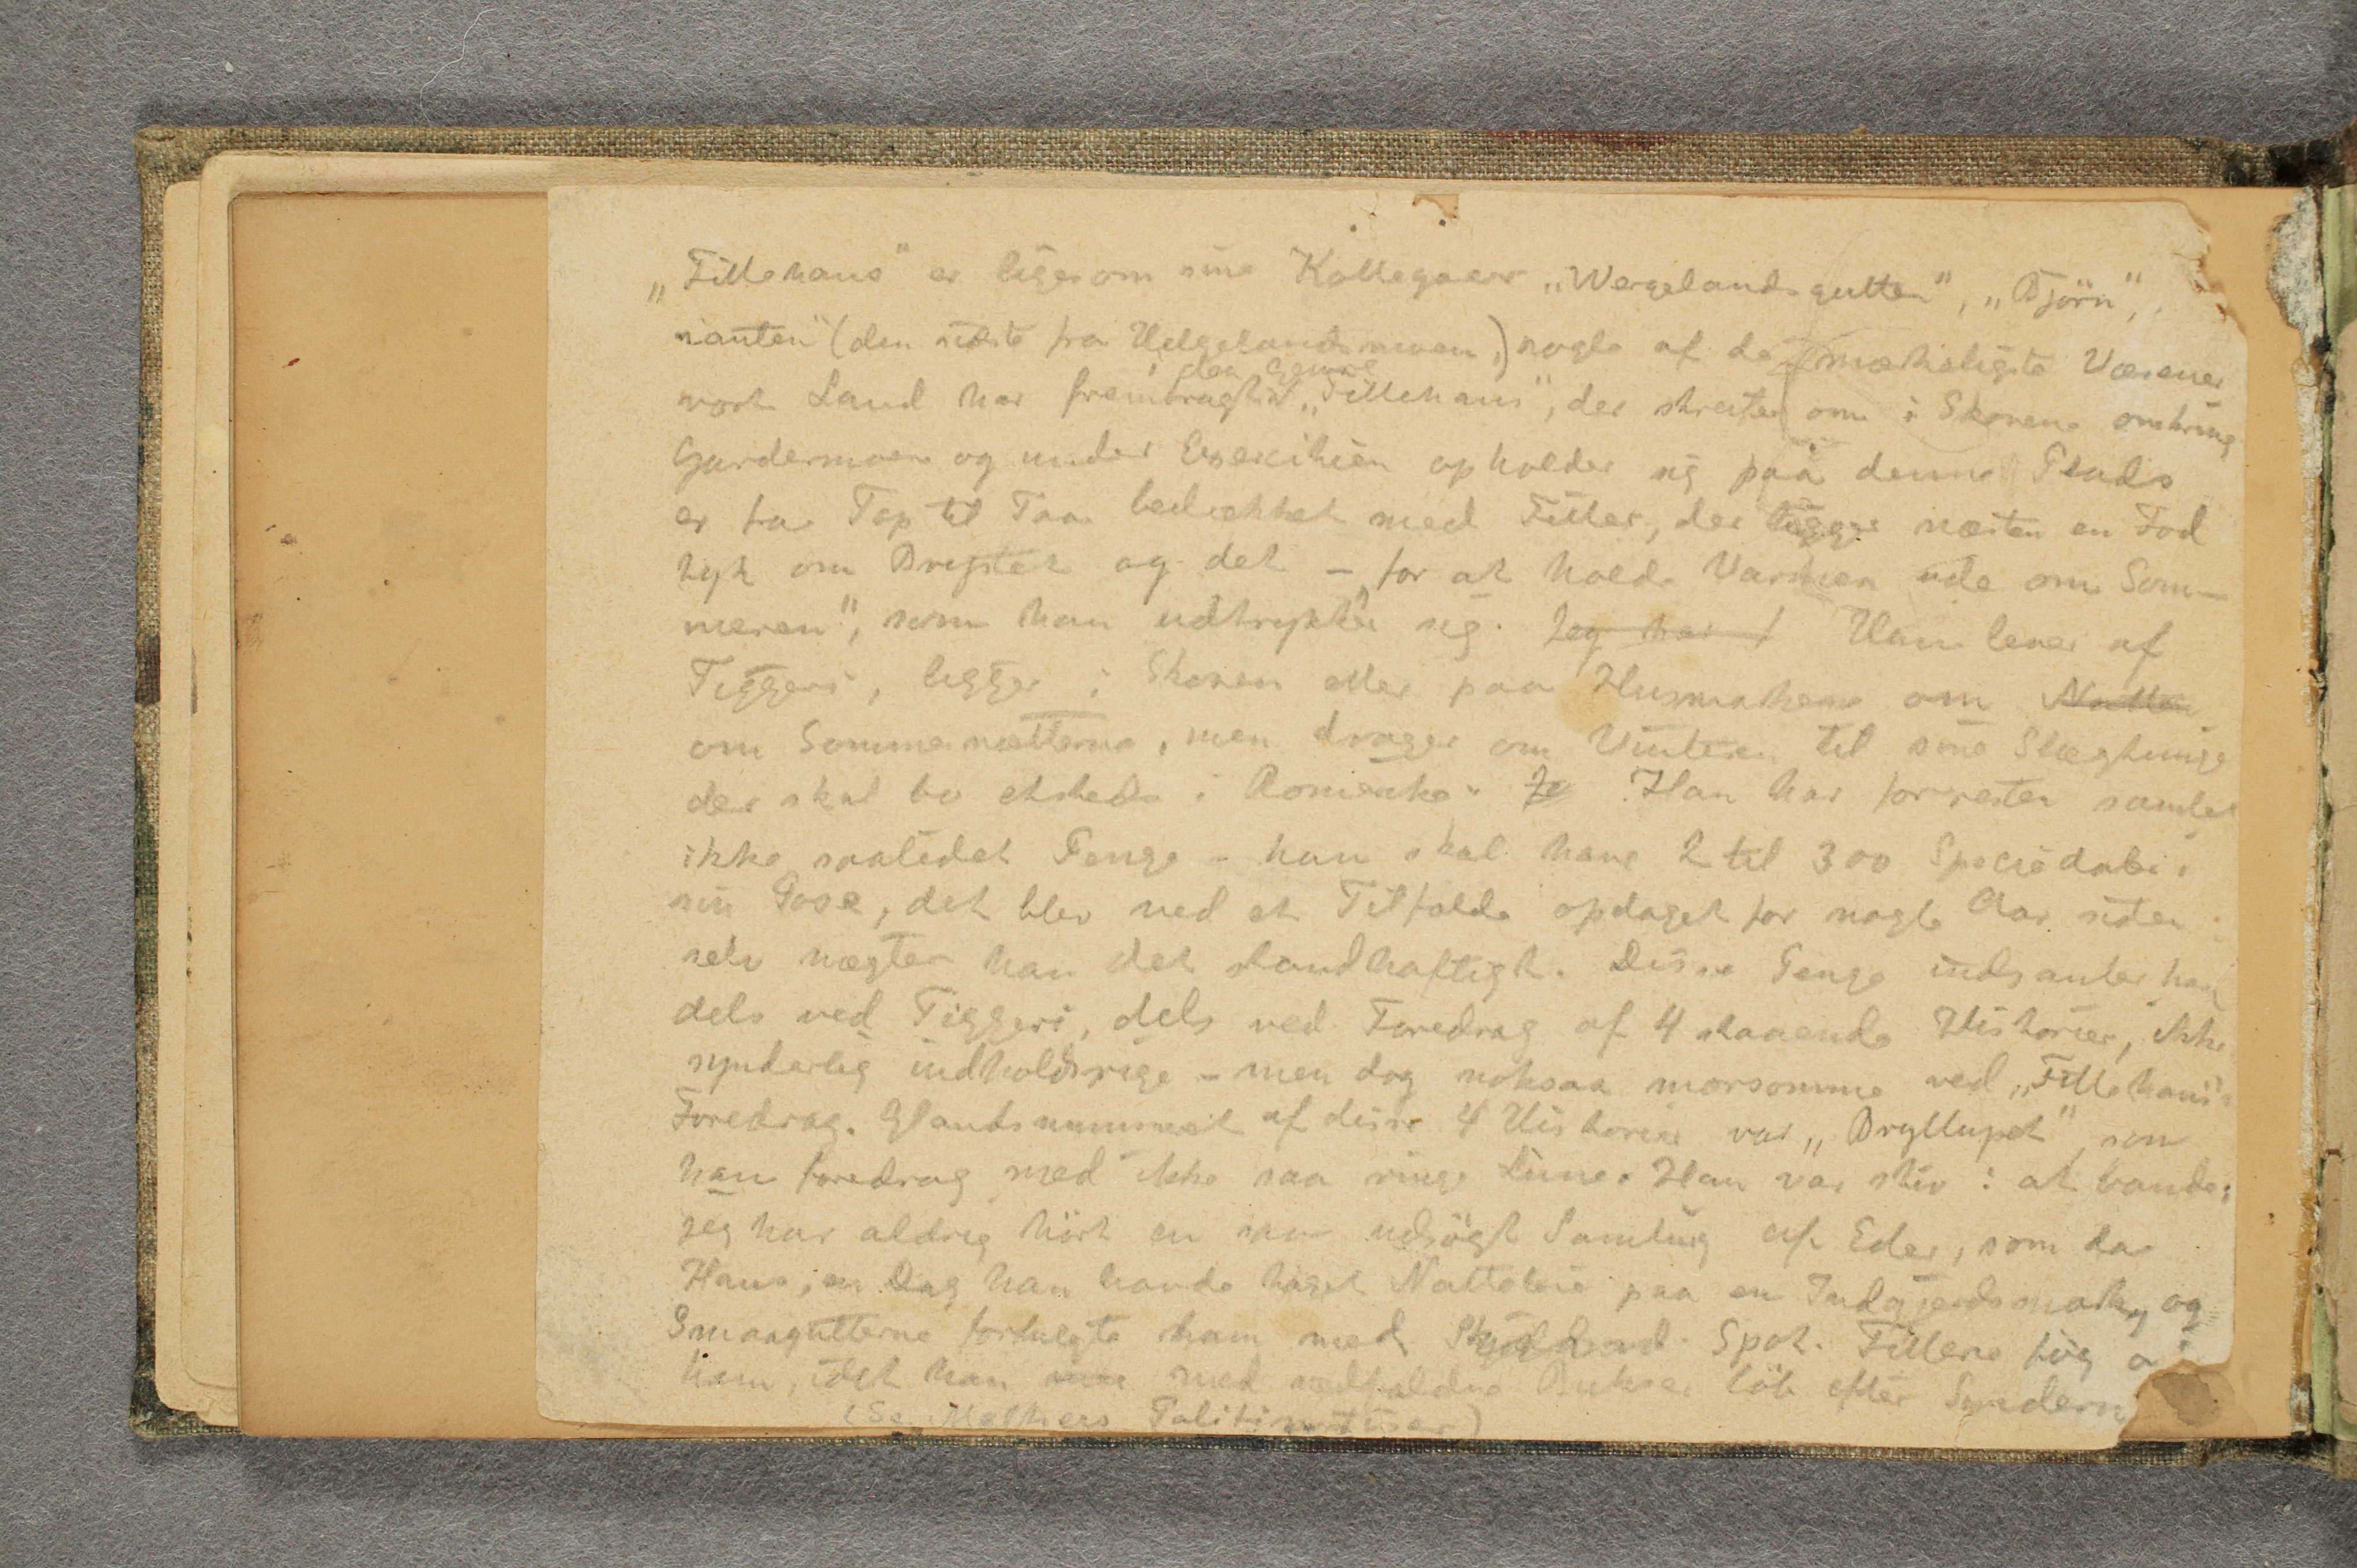 „Fillehans" er ligesom sine Kollegaer „Wergelandsgutten", „Björn",
nanten" (den sidste fra Helgelandsmoen,) nogle af de mærkeligste Væsener
vort Land har frembragt i den Genre „Fillehans", der streifer om i Skovene omkring
Gardermoen og under Exercitien opholder sig paa denne Plads
er fra Top til Taa bedækket med Filler, der ligger næsten en Fod
tyk om Brystet og det – „for at holde Varmen ude om Som-
meren", som han udtrykker sig. Jeg har Han lever af
Tiggeri, ligger i Skoven eller paa Husmarken om Natten
om Sommernætterne, men drager om Vinteren til sine Slægtninge
der skal bo etsteds i Romerike. Je Han har forresten samlet
ikke saalidet Penge – han skal have 2 til 300 Speciedaler i
sin Pose, det blev ved et Tilfælde opdaget for nogle Aar siden
selv nægter han det standhaftigt. Disse Penge indsamler han
dels ved Tiggeri, dels ved Foredrag af 4 staaende Historier, ikke
synderlig indholdsrige – men dog noksaa morsomme ved „Fillehans's
Foredrag. Glandsnummeret af disse 4 Historier var „Bryllupet" som
han foredrog med ikke saa ringe Lune. Han var stiv i at bande;
jeg har aldrig hört en saa udsögt Samling af Eder, som da
Hans, en Dag han havde taget Natteleie paa en Indgjerdsmark, og
Smaagutterne forfulgte ham med Spot. Fillerne fög a
ham, idet han med nedfaldne Bukser löb efter Syndern
(Se Malthes Politinotiser)